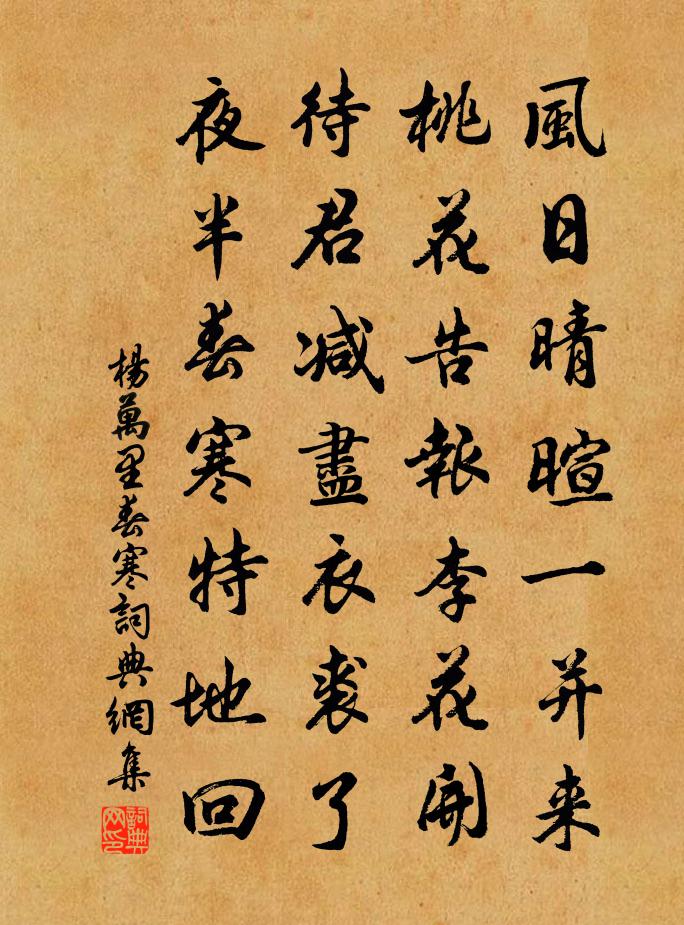 風日晴暄一并来
桃花告報李花開
待君减盡衣裘了
夜半春寒特地回
楊萬里春寒詞典網集
詞典网印